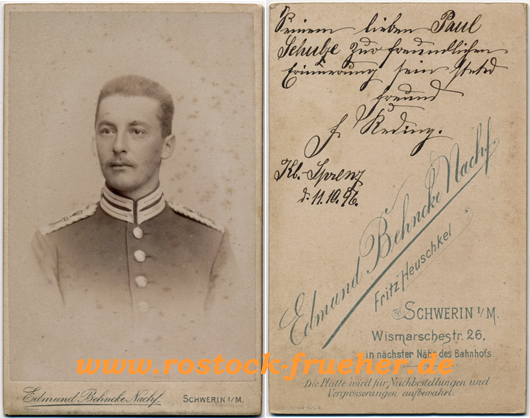 Seinem lieben Paul
Schulze zur freundlichen
Erinnerung sein stets
freund
f. Reding.
Kl.-Sprenz
d. 11.10.96.
Edmund Behncke Nachf.
Fritz Heuschkel
SCHWERIN i/M.
Wismarschestr. 26,
in nächster Nähe des Bahnhofs
Die Platte wird für Nachbestellungen und
Vergrösserungen aufbewahrt.
Edmund Behncke Nachf. SCHWERIN i/M.
www.rostock-frueher.de